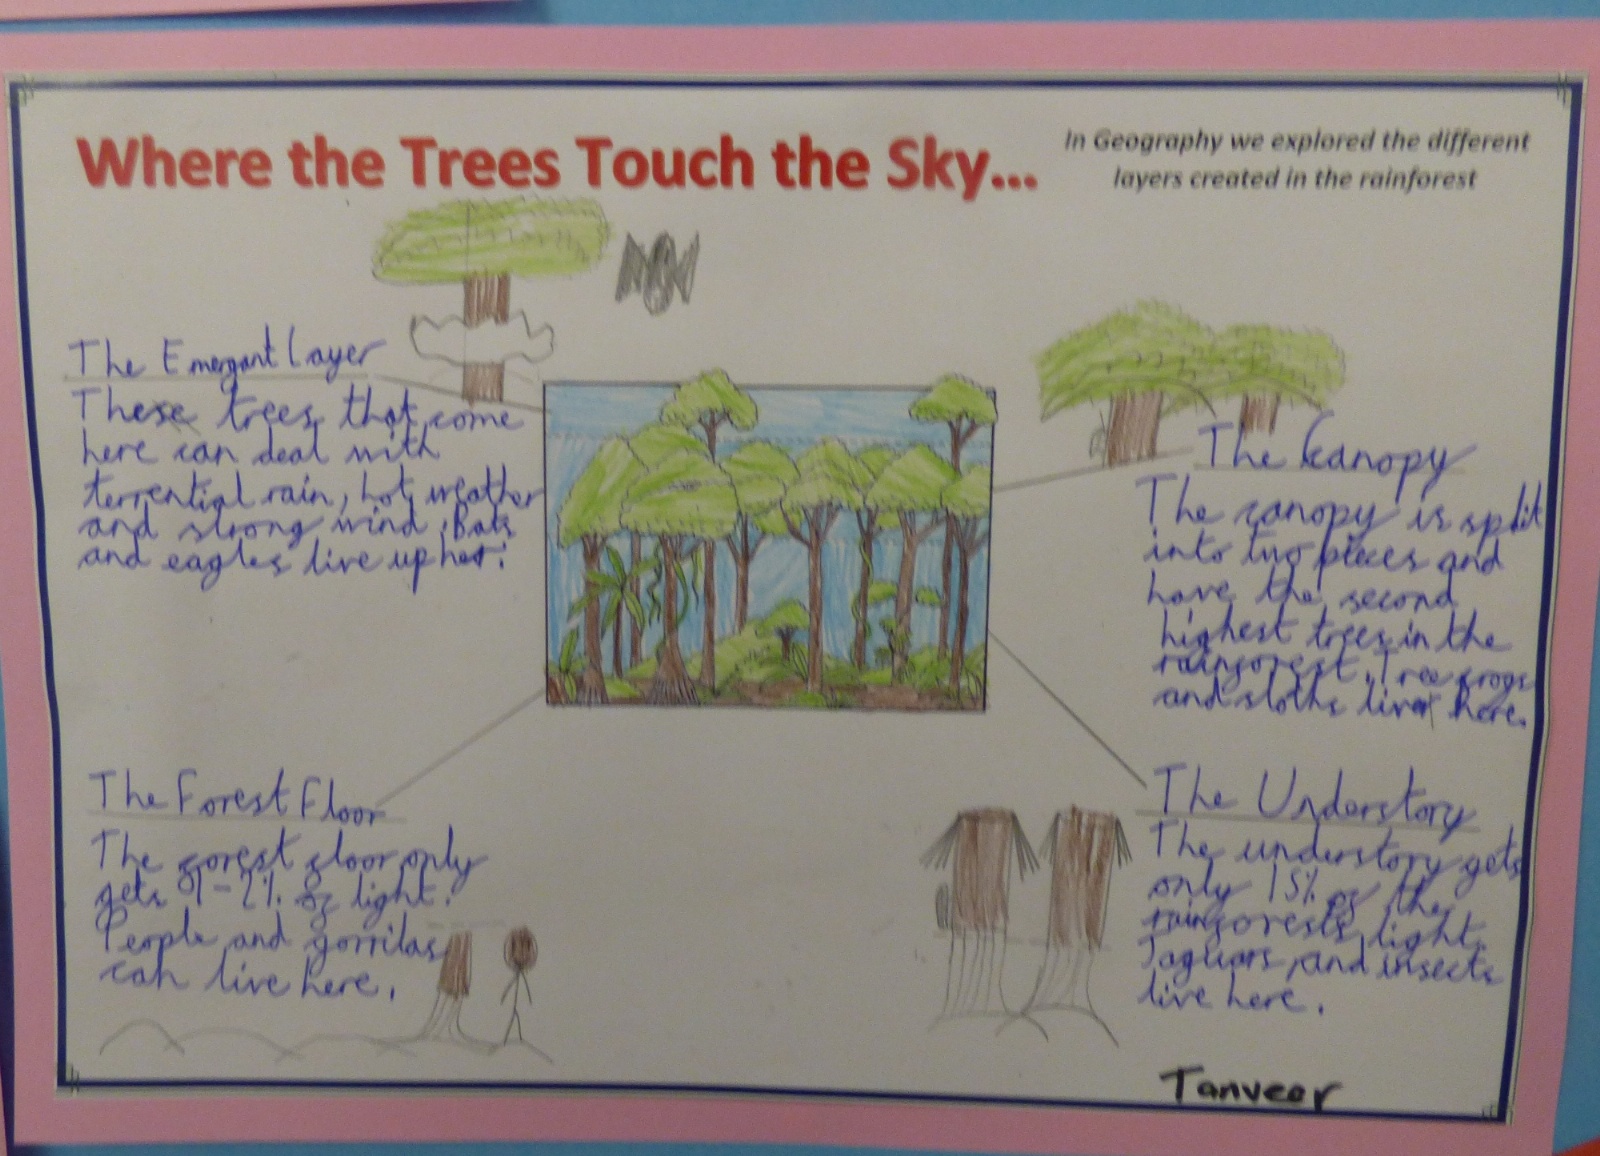 Where the Trees Touch the Sky...
In Geography we explored the different
layers created in the rainforest
The Emergant Layer
These trees that come
here can deal with
terrential rain, hot weather
and strong wind. Bats
and eagles live up her.
The Canopy
The canopy is split
into two pieces and
have the second
highest trees in the
rainforest. Tree frogs
and sloths live here.
The Forest Floor
The forest floor only
gets 1-2% of light.
People and gorrilas
can live here.
The Understory
The understory gets
only 15% of the
rainforests light.
Jaguars, and insects
live here.
Tanveer